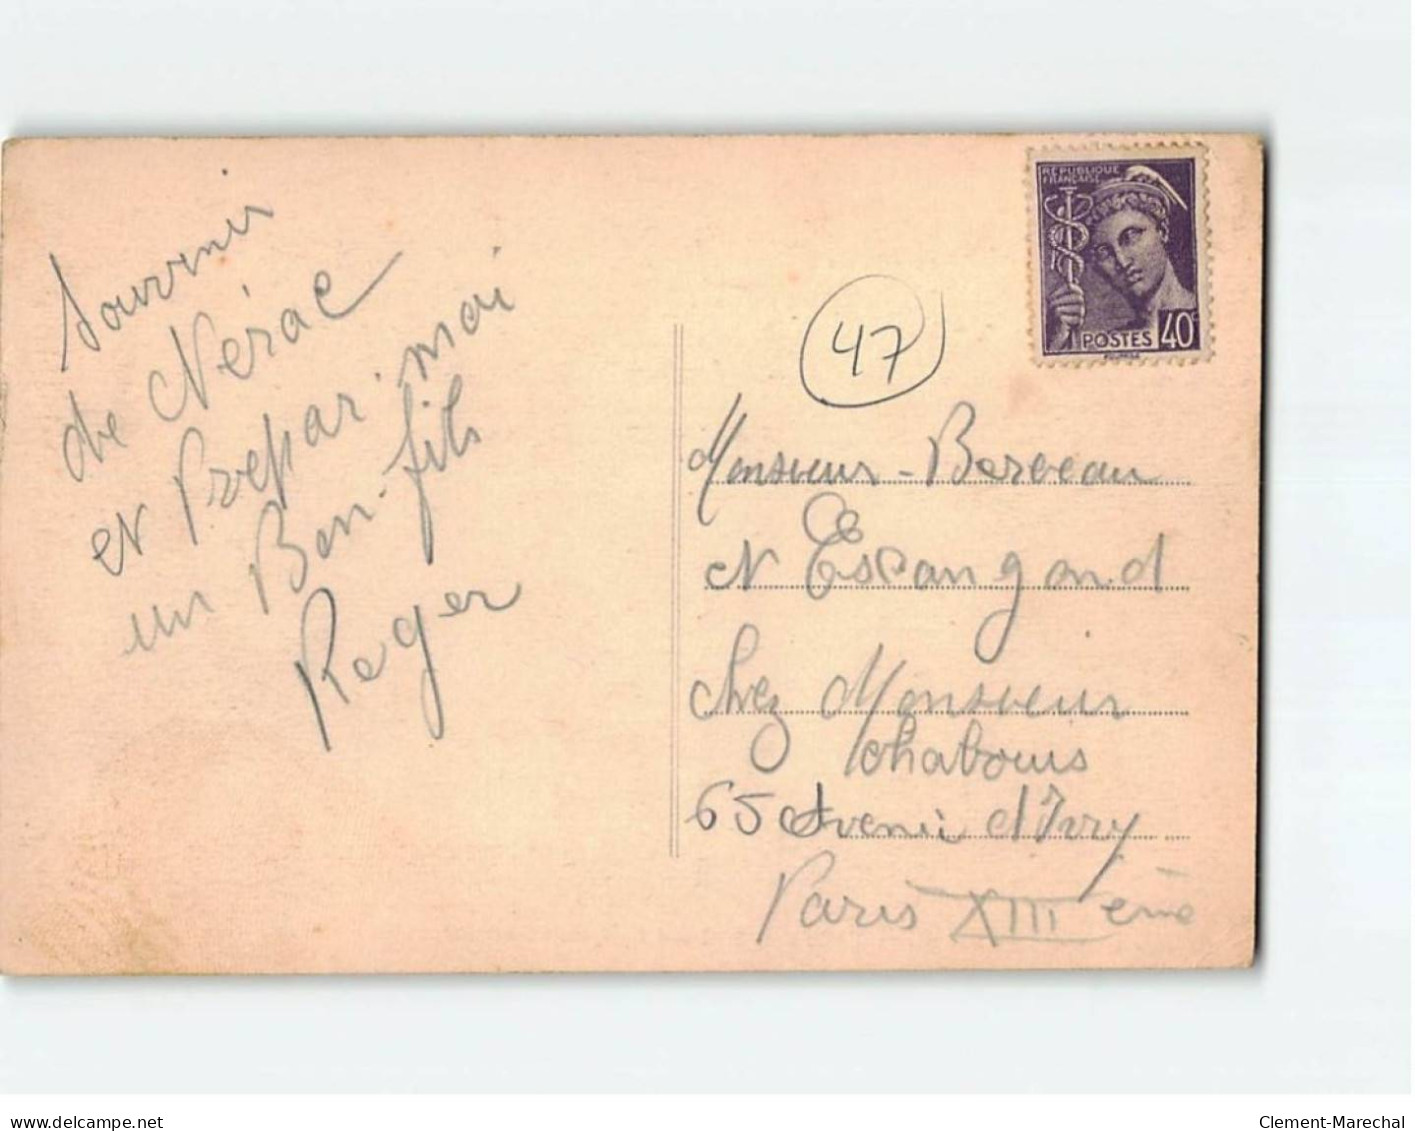 Souvenir
de Nérac
et Prepar. moi
un Bon-fils
Roger
47
REPUBLIQUE
FRANÇAISE
POSTES 40c
Monsieur - Berceau
et Escangand
Chez Monsieur
Chabouis
65 Avenu d'Ivry
Paris XIII eme
delcampe.net
Clement-Marechal